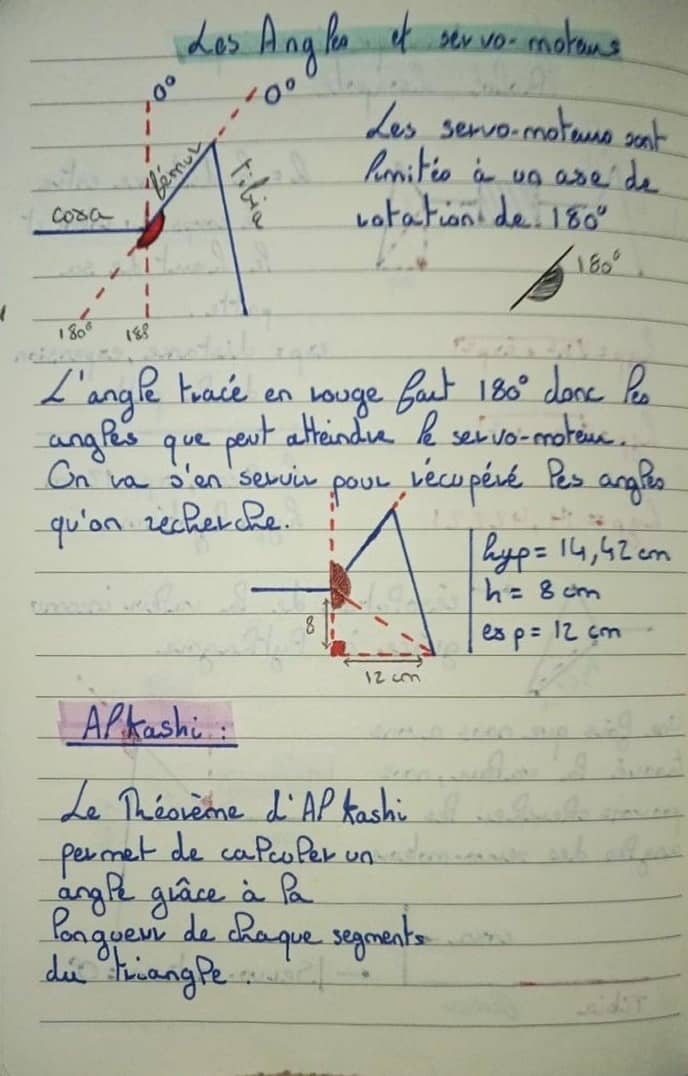 Les Angles et servo-moteurs
0°
0°
fémur
tibia
coxa
180°
Les servo-moteurs sont
limités à un axe de
rotation de 180°
180°
L'angle tracé en rouge fait 180° donc les
angles que peut atteindre le servo-moteur.
On va s'en servir pour récupéré les angles
qu'on recherche.
8
12 cm
hyp = 14,42 cm
h = 8 cm
esp = 12 cm
Al kashi :
Le Théorème d'Al kashi
permet de calculer un
angle grâce à la
longueur de chaque segments
du triangle.